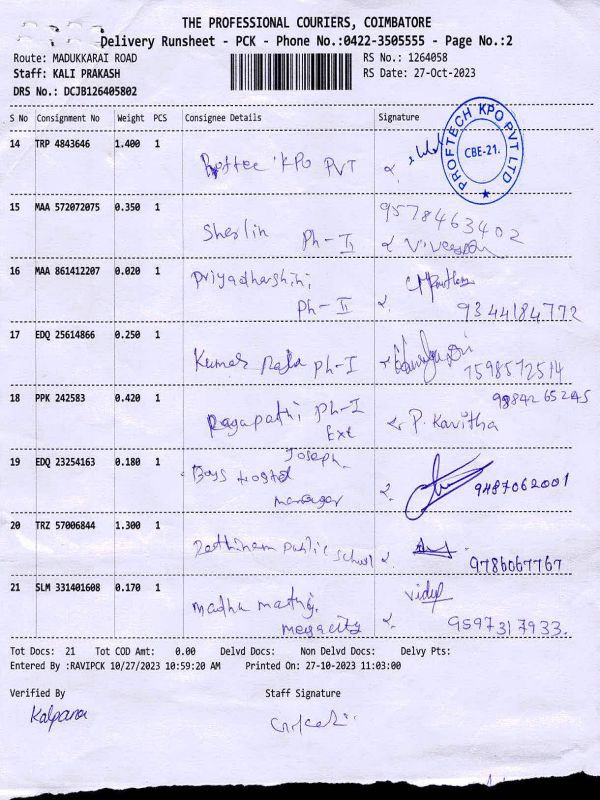 THE PROFESSIONAL COURIERS, COIMBATORE
Delivery Runsheet - PCK - Phone No.:0422-3505555 - Page No.:2
Route: MADUKKARAI ROAD
RS No.: 1264058
Staff: KALI PRAKASH
RS Date: 27-Oct-2023
DRS No.: DCJB126405802
S No Consignment No Weight PCS Consignee Details Signature
PROFTECH KPO PVT LTD
CBE-21.
14 TRP 4843646 1.400 1
KPO PVT
15 MAA 572072075 0.350 1 9578463402
Sherlin Ph-II
16 MAA 861412207 0.020 1 Priyadharshini
Ph-II 9344184772
17 EDQ 25614866 0.250 1
Kumar Raja Ph-I 7598572514
18 PPK 242583 0.420 1
Ragapathi Ph-I P. Kavitha
Ext
19 EDQ 23254163 0.180 1 Joseph
Boys Hostel 9487062001
manager
20 TRZ 57006844 1.300 1
Rathinam Public School 9786067767
21 SLM 331401608 0.170 1 Vidya
Madhu
megacity 9597317933.
Tot Docs: 21 Tot COD Amt: 0.00 Delvd Docs: Non Delvd Docs: Delvy Pts:
Entered By :RAVIPCK 10/27/2023 10:59:20 AM Printed On: 27-10-2023 11:03:00
Verified By Staff Signature
Kalpana